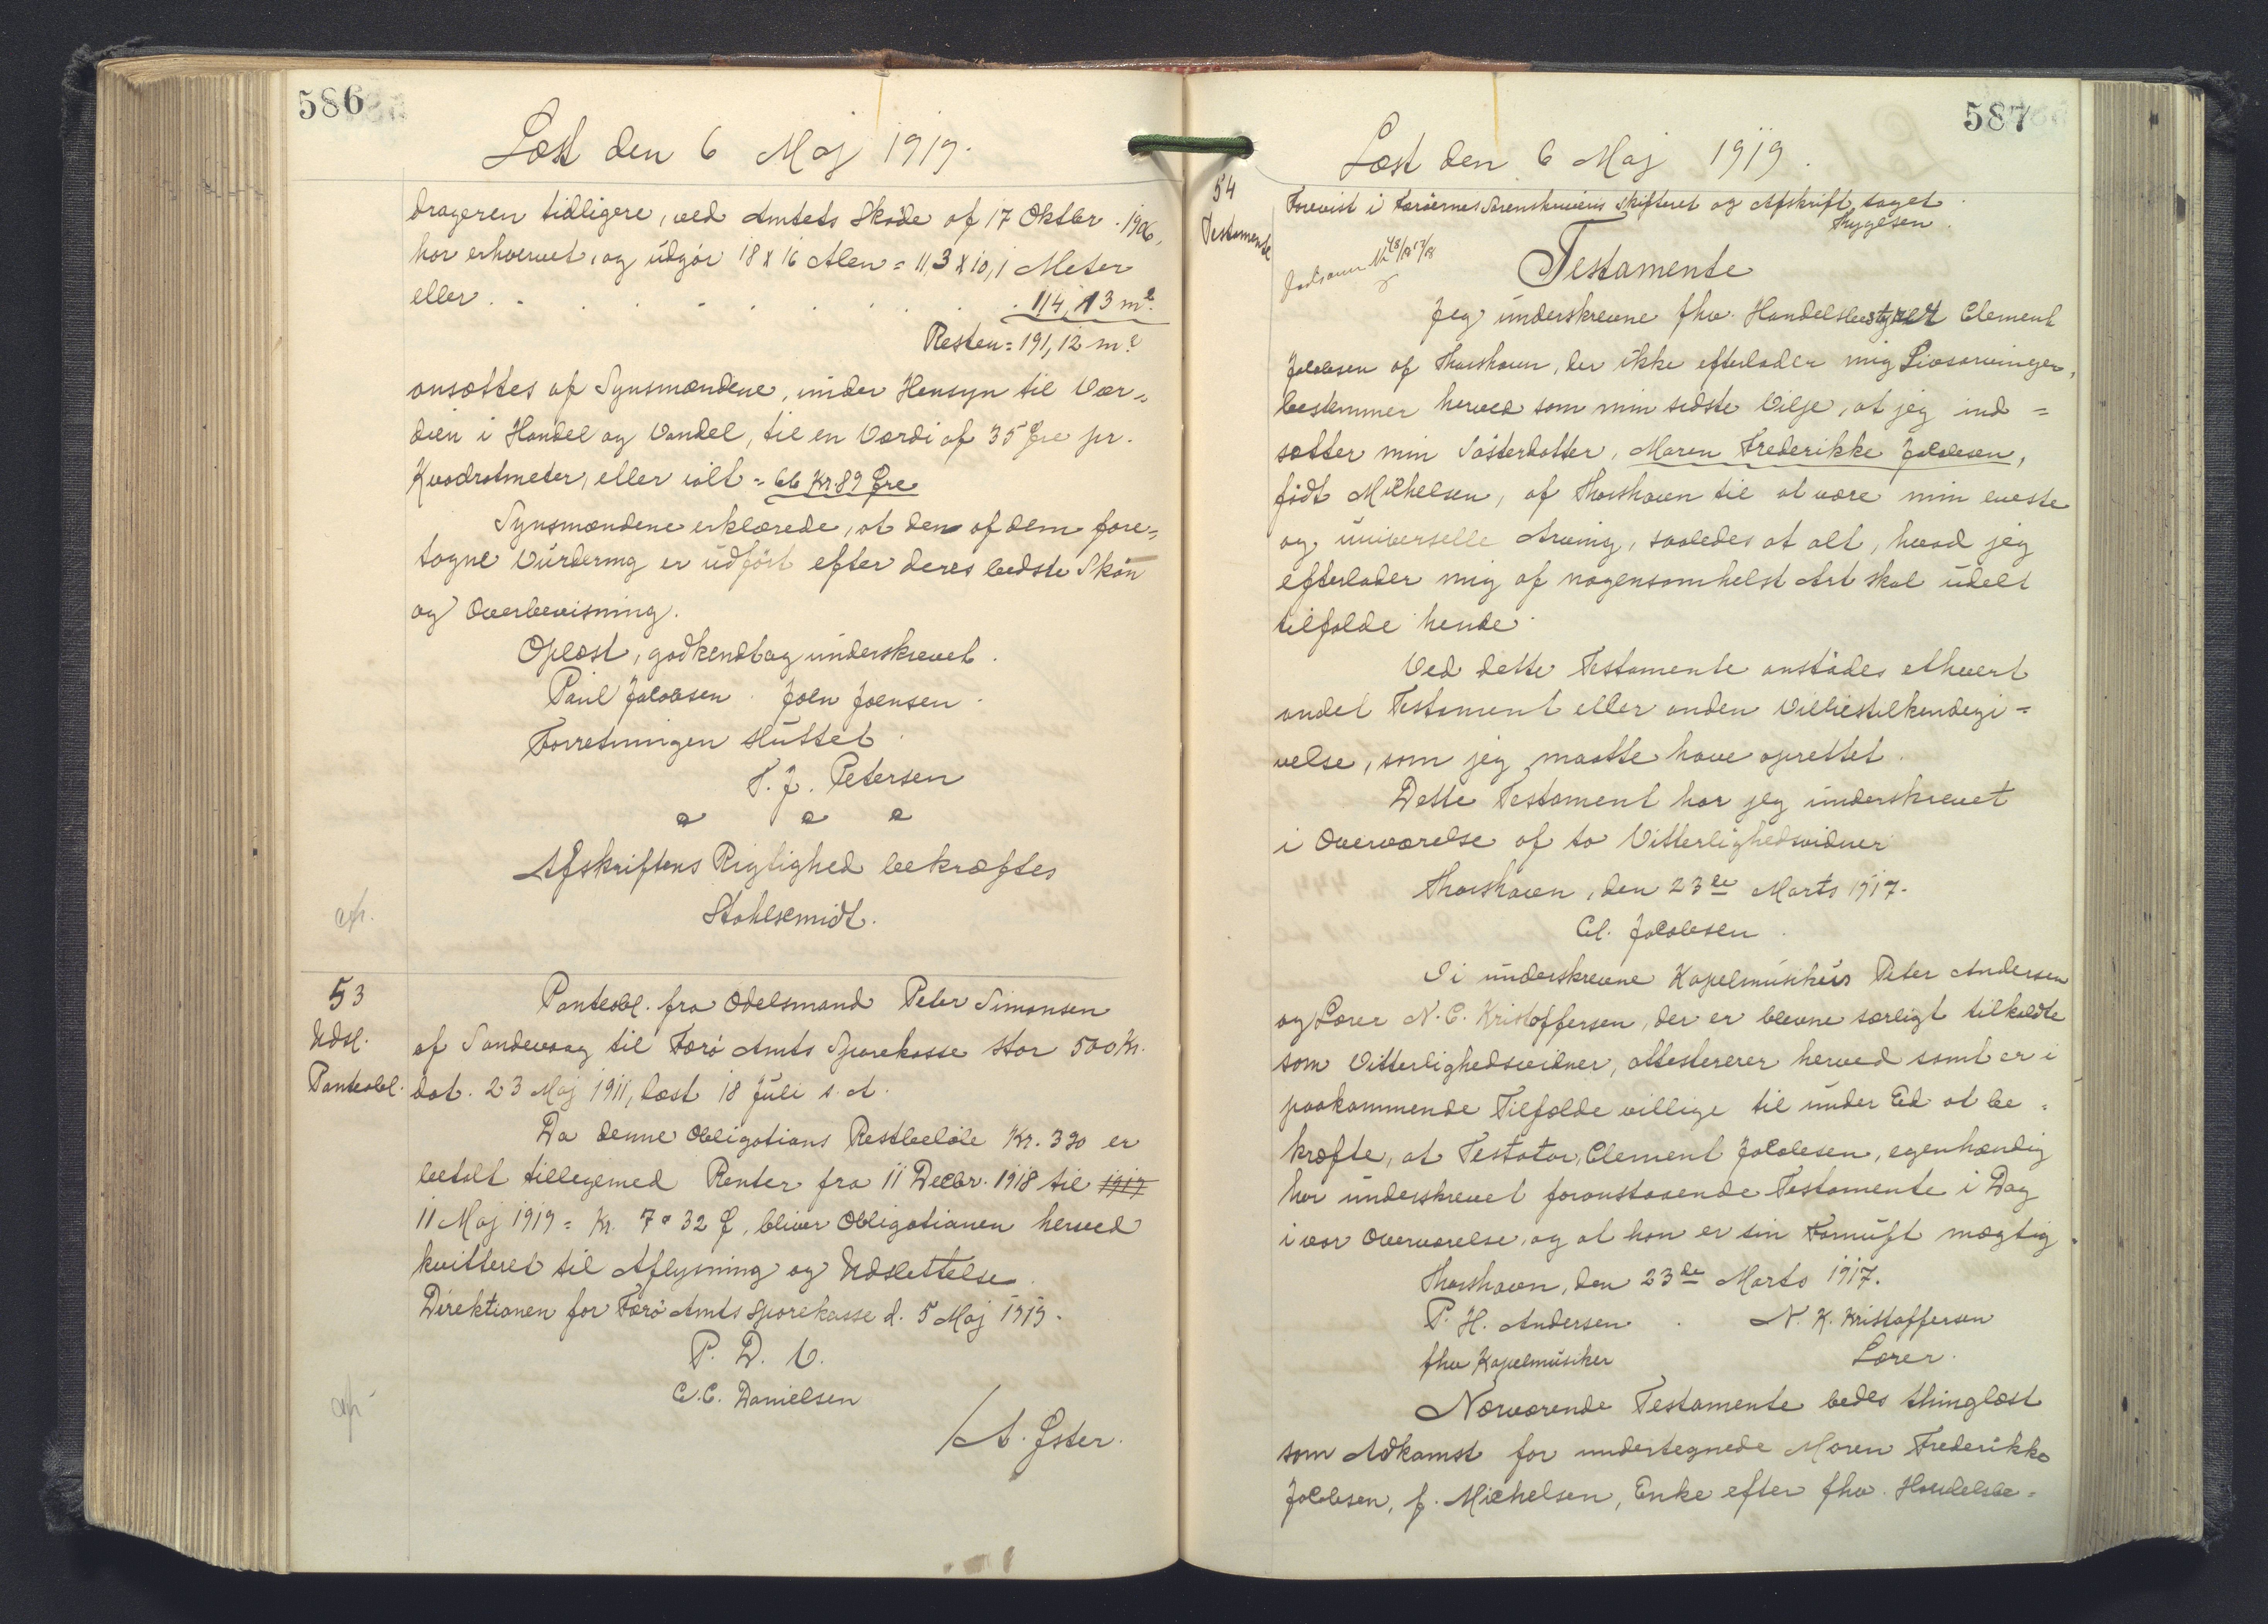 586
Læst den 6 Maj 1919.
drageren tidligere, ved Amtets Skøde af 17 Oktbr. 1906,
har erhvervet, og udgør 18 x 16 Alen = 11,3 x 10,1 Meter
eller . . . . . . . . . 114,13 m².
Resten = 191,12 m²
ansættes af Synsmændene, under Hensyn til Vær-
dien i Handel og Vandel, til en Værdi af 35 Øre pr.
Kvadratmeter, eller ialt = 66 Kr. 89 Øre
Synsmændene erklærede, at den af dem fore-
tagne Vurdering er udført efter deres bedste Skøn
og Overbevisning.
Oplæst, godkendt og underskrevet.
Paul Jacobsen. Joen Joensen.
Forretningen sluttet.
T. J. Petersen
Afskriftens Rigtighed bekræftes
Stahlschmidt.
53
Udsl.
Panteobl.
Panteobl. fra Odelsmand Peter Simonsen
af Sandevaag til Færø Amts Sparekasse stor 500 Kr.
dat. 23 Maj 1911, læst 18 Juli s. A.
Da denne Obligations Restbeløb Kr. 330 er
betalt tilligemed Renter fra 11 Decbr. 1918 til 1919
11 Maj 1919 = Kr. 7 " 32 Ø, bliver Obligationen herved
kvitteret til Aflysning og Udslettelse.
Direktionen for Færø Amts Sparekasse d. 5 Maj 1919.
P. D. V.
C. C. Danielsen
/A. Øster.
587
Læst den 6 Maj 1919.
54
Testamente
Forevist i Færøernes Sorenskriveris Skifteret og Afskrift taget.
Thygesen.
Testamente
Jeg underskrevne fhv. Handelsbestyrer Clement
Jacobsen af Thorshavn, der ikke efterlader mig Livsarvinger,
bestemmer herved som min sidste Vilje, at jeg ind=
sætter min Søsterdatter, Maren Frederikke Jacobsen,
født Michelsen, af Thorshavn til at være min eneste
og universelle Arving, saaledes at alt, hvad jeg
efterlader mig af nogensomhelst Art skal udelt
tilfalde hende.
Ved dette Testamente anstødes ethvert
andet Testament eller anden Villiestilkendegi=
velse, som jeg maatte have oprettet.
Dette Testament har jeg underskrevet
i Overværelse af to Vitterlighedsvidner
Thorshavn, den 23de Marts 1917.
Cl. Jacobsen.
Vi underskrevne Kapelmusikus Peter Andersen
og Lærer N. C. Kristoffersen, der er blevne særligt tilkaldte
som Vitterlighedsvidner, attesterer herved samt er i
paakommende Tilfælde villige til under Ed at be=
kræfte, at Testator, Clement Jacobsen, egenhændig
har underskrevet foranstaaende Testamente i Dag
i vor Overværelse, og at han er sin Fornuft mægtig.
Thorshavn, den 23de Marts 1917.
P. H. Andersen. N. K. Kristoffersen
fhv Kapelmusiker Lærer.
Nærværende Testamente bedes thinglæst
som Adkomst for undertegnede Maren Frederikke
Jacobsen, f. Michelsen, Enke efter fhv. Handelsbe=